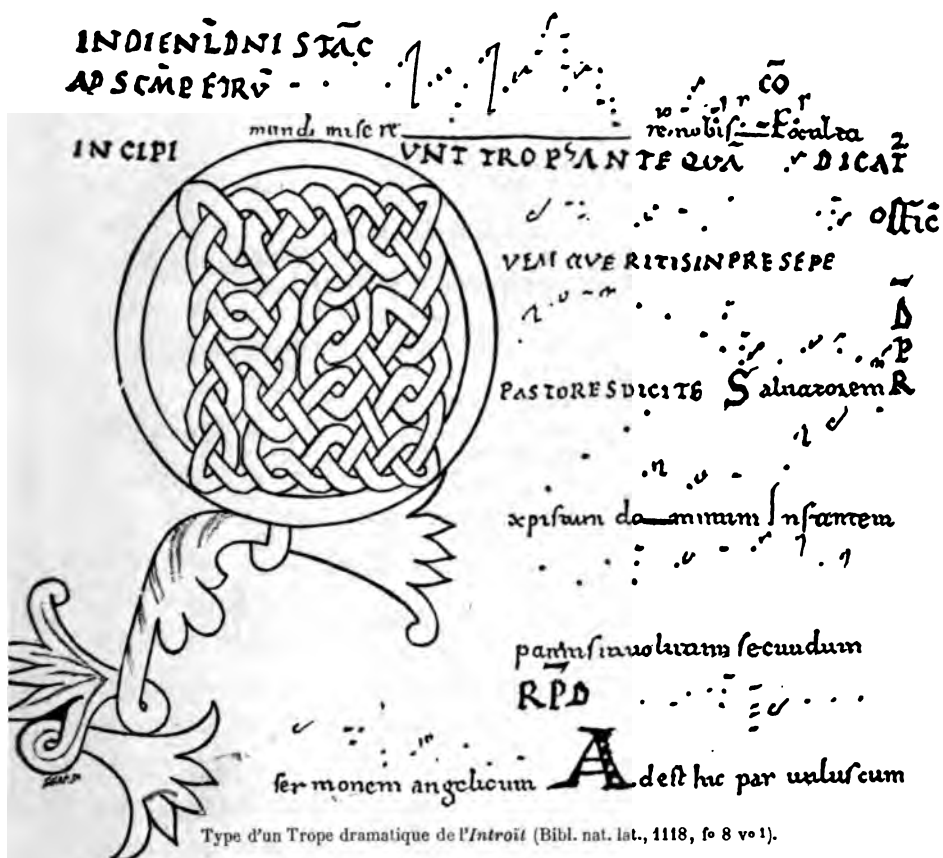 INDIEN̄L̄DNI STĀC
AD SCM̄PETRV̄
CŌ
mundi miserere nobis Exaltca
INCIPIVNT TROPˢANTEQUĀ DICAT̄
OFFIC̄
VEM QVERITISINPRESEPE
PASTORESDICITE Saluatorem
D̄
P
R
xpistum dominum Infantem
pannisinuolutum secundum
RP̄D
sermonem angelicum Adest hic paruuluscum
Type d'un Trope dramatique de l'Introït (Bibl. nat. lat., 1118, fo 8 vo 1).